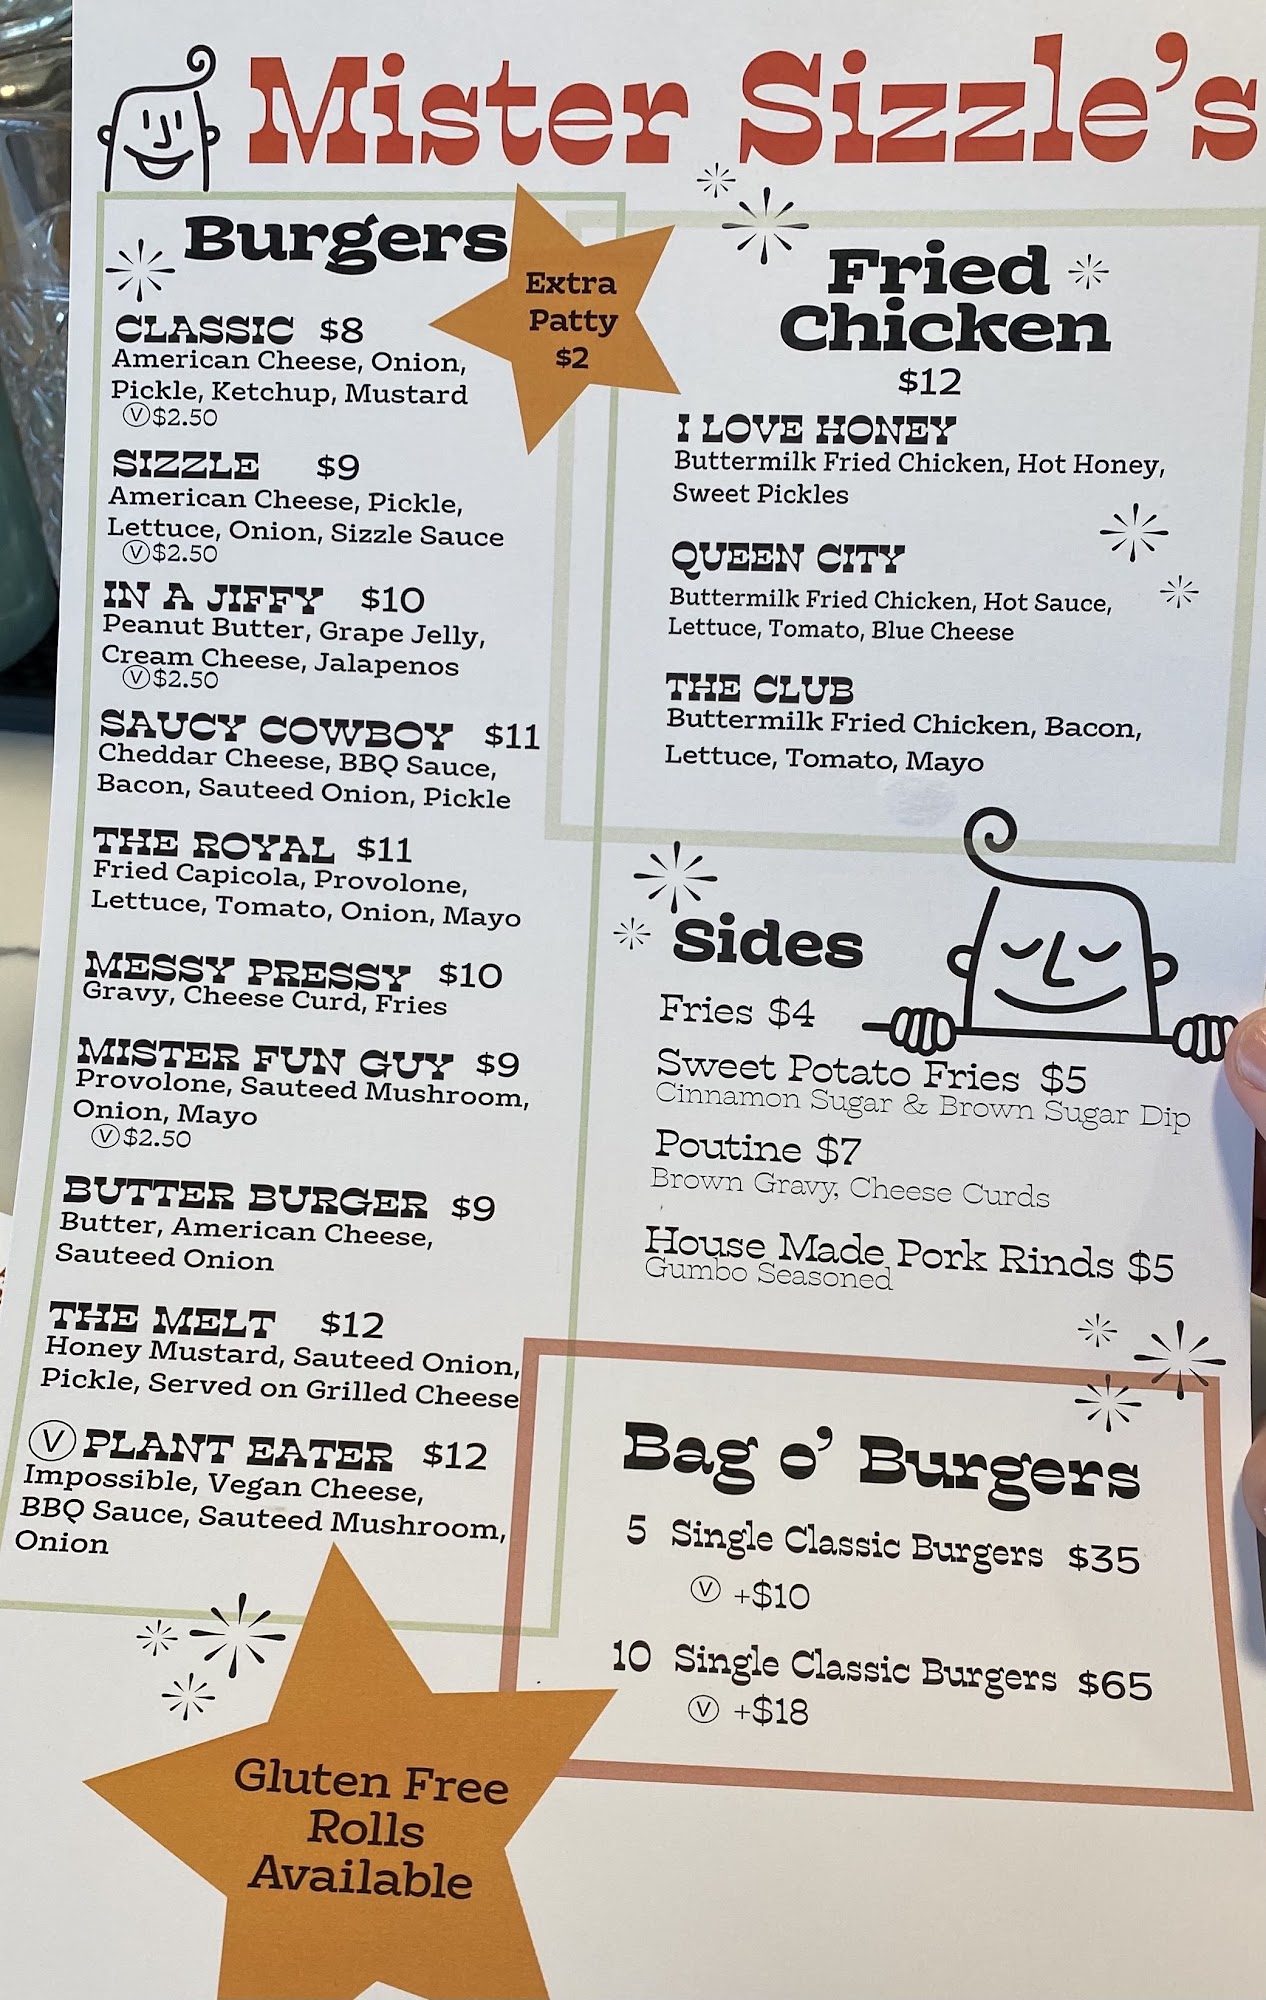 Mister Sizzle's
Burgers
Extra
Patty
$2
CLASSIC $8
American Cheese, Onion,
Pickle, Ketchup, Mustard
Ⓥ$2.50
SIZZLE $9
American Cheese, Pickle,
Lettuce, Onion, Sizzle Sauce
Ⓥ$2.50
IN A JIFFY $10
Peanut Butter, Grape Jelly,
Cream Cheese, Jalapenos
Ⓥ$2.50
SAUCY COWBOY $11
Cheddar Cheese, BBQ Sauce,
Bacon, Sauteed Onion, Pickle
THE ROYAL $11
Fried Capicola, Provolone,
Lettuce, Tomato, Onion, Mayo
MESSY PRESSY $10
Gravy, Cheese Curd, Fries
MISTER FUN GUY $9
Provolone, Sauteed Mushroom,
Onion, Mayo
Ⓥ$2.50
BUTTER BURGER $9
Butter, American Cheese,
Sauteed Onion
THE MELT $12
Honey Mustard, Sauteed Onion,
Pickle, Served on Grilled Cheese
Ⓥ PLANT EATER $12
Impossible, Vegan Cheese,
BBQ Sauce, Sauteed Mushroom,
Onion
Gluten Free
Rolls
Available
Fried
Chicken
$12
I LOVE HONEY
Buttermilk Fried Chicken, Hot Honey,
Sweet Pickles
QUEEN CITY
Buttermilk Fried Chicken, Hot Sauce,
Lettuce, Tomato, Blue Cheese
THE CLUB
Buttermilk Fried Chicken, Bacon,
Lettuce, Tomato, Mayo
Sides
Fries $4
Sweet Potato Fries $5
Cinnamon Sugar & Brown Sugar Dip
Poutine $7
Brown Gravy, Cheese Curds
House Made Pork Rinds $5
Gumbo Seasoned
Bag o' Burgers
5 Single Classic Burgers $35
Ⓥ +$10
10 Single Classic Burgers $65
Ⓥ +$18